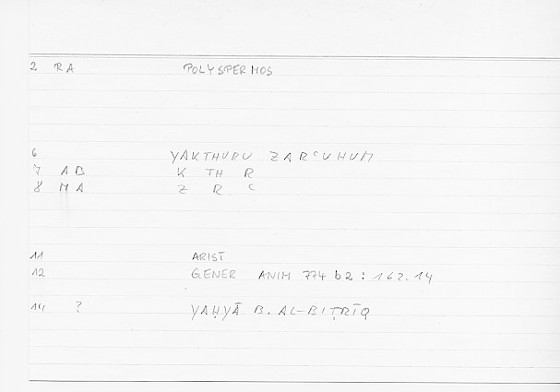 2 RA POLYSPERMOS
6 YAKTHURU ZARᶜUHUM
7 AB K TH R
8 MA Z R ᶜ
11 ARIST
12 GENER ANIM 774 b2 : 162.14
14 ? YAḤYĀ B. AL-BIṬRĪQ